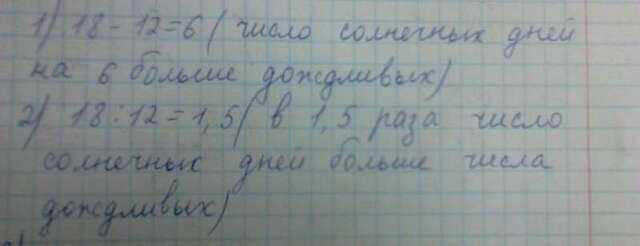 1) 18 - 12 = 6 ( число солнечных дней
на 6 больше дождливых)
2) 18 : 12 = 1,5 ( в 1,5 раза число
солнечных дней больше числа
дождливых)